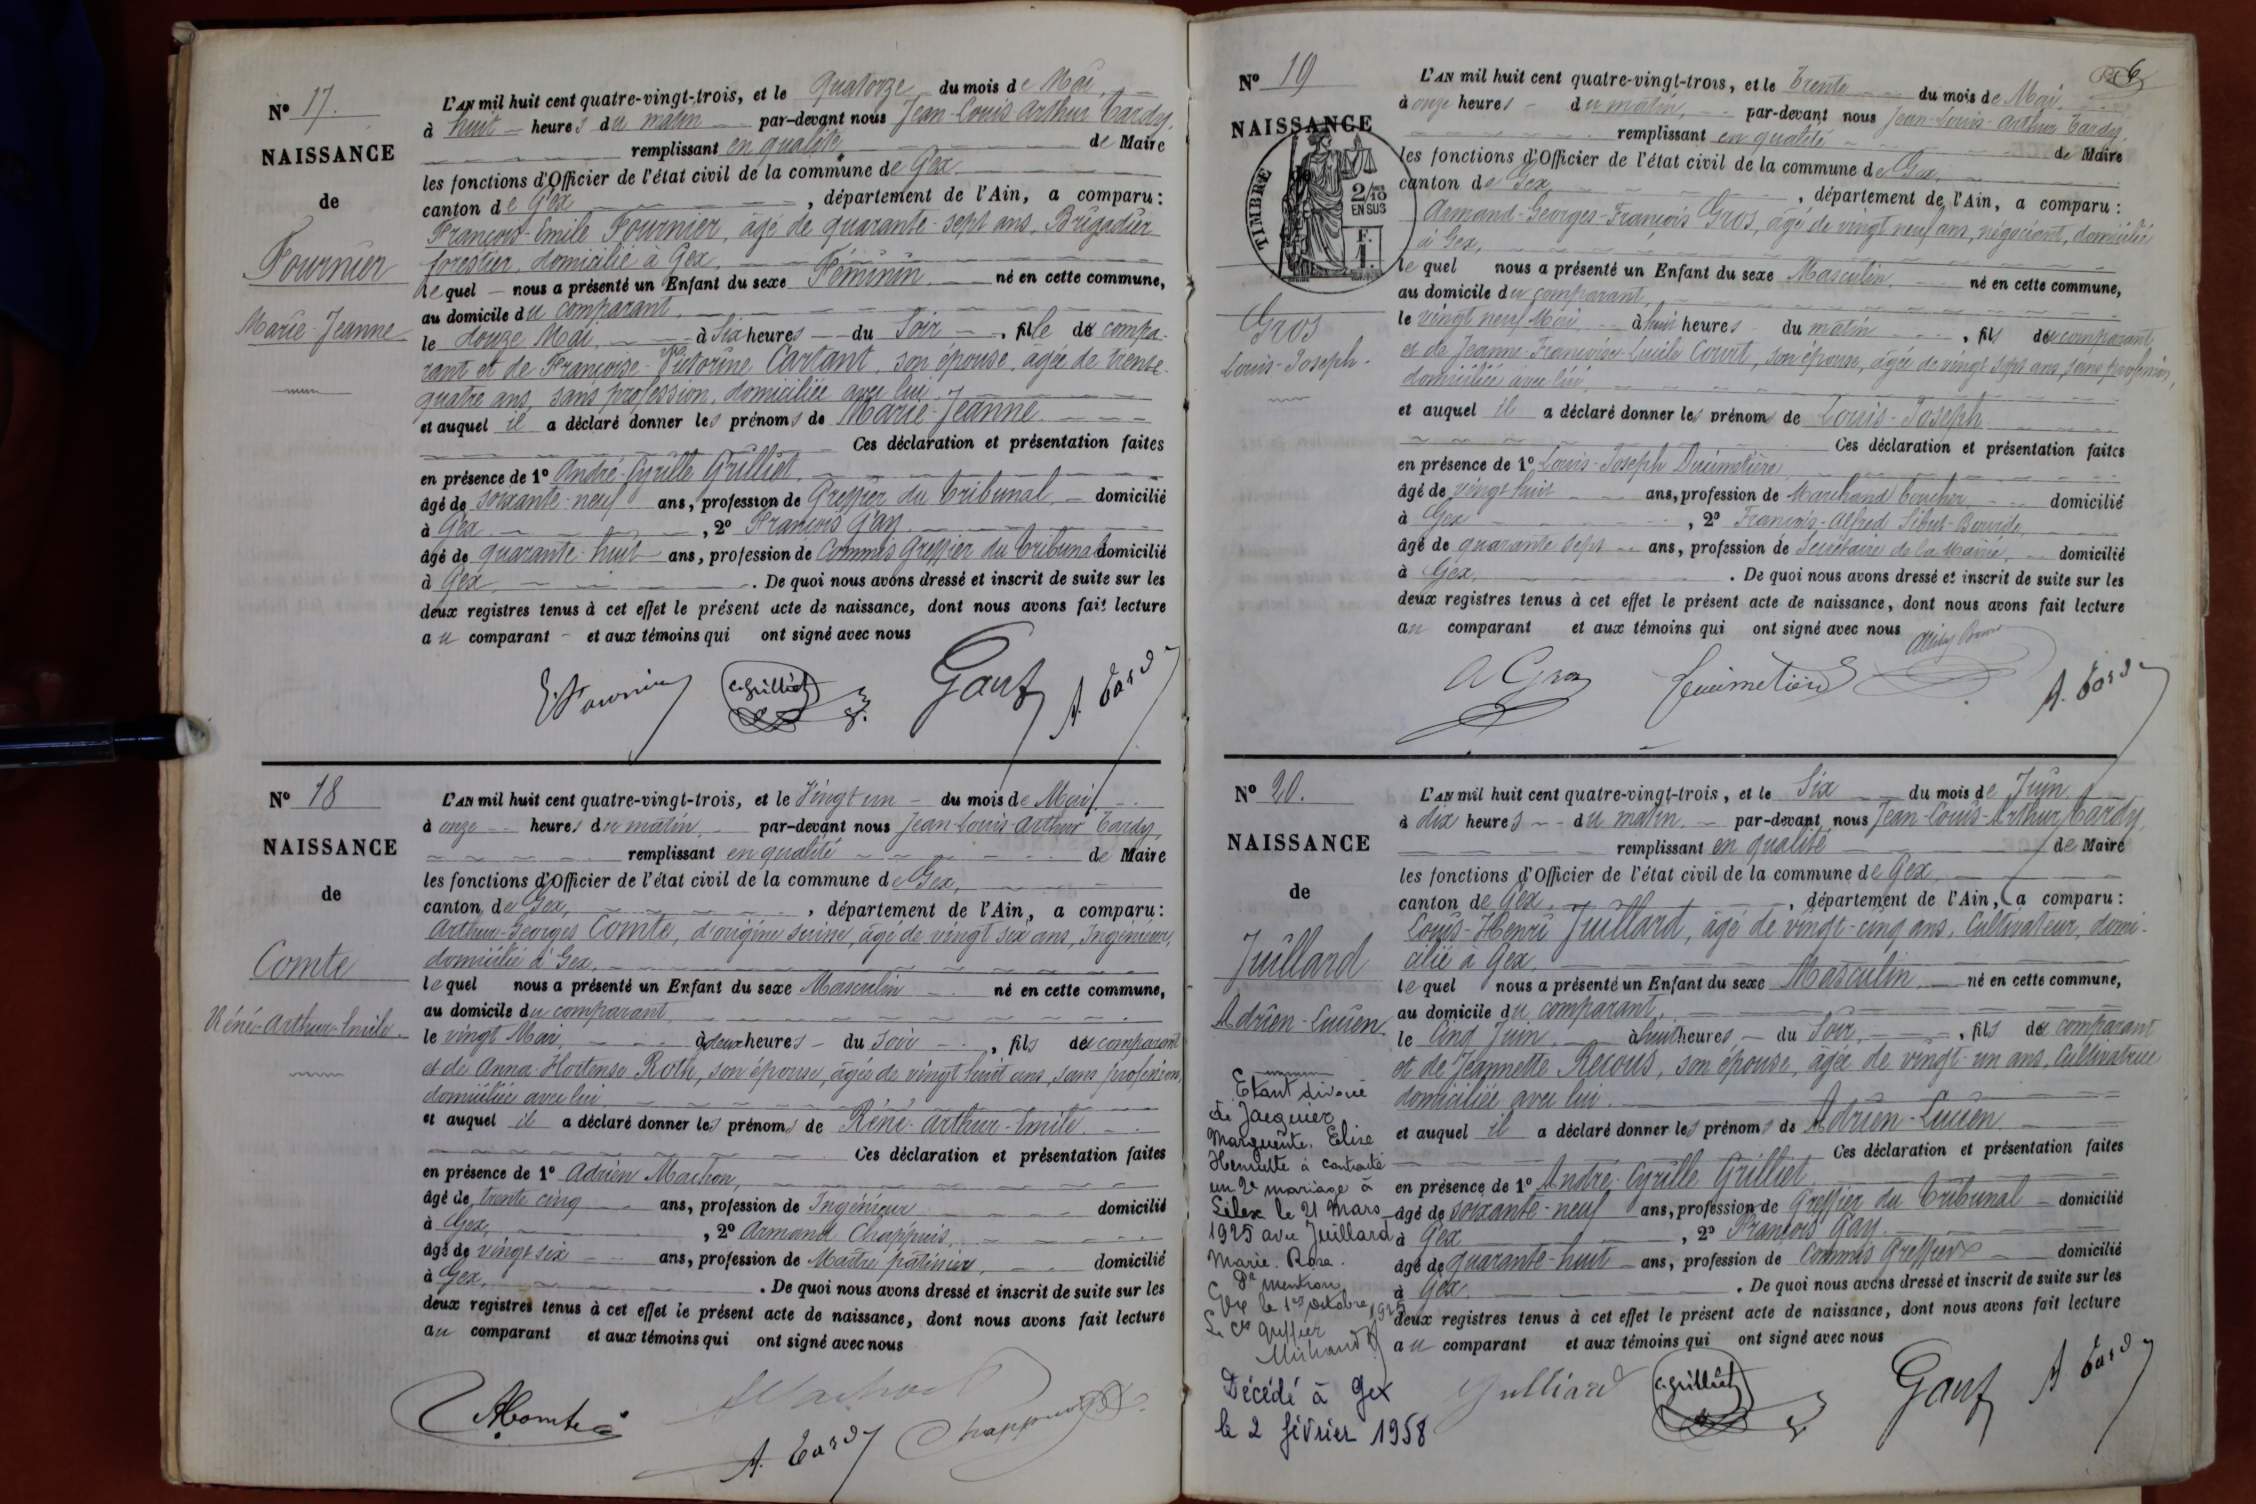 N° 17.
NAISSANCE
de
Fournier
Marie-Jeanne
L'AN mil huit cent quatre-vingt-trois, et le Quatorze du mois de Mai,
à huit heures du matin par-devant nous Jean-Louis Arthur Tardy,
remplissant en qualité de Maire
les fonctions d'Officier de l'état civil de la commune de Gex
canton de Gex, département de l'Ain, a comparu:
François-Emile Fournier, âgé de quarante-sept ans, Brigadier
forestier, domicilié à Gex,
lequel nous a présenté un Enfant du sexe Féminin né en cette commune,
au domicile du comparant,
le douze Mai, à six heures du Soir, fille du compa-
rant et de Françoise-Victorine Cartant, son épouse, âgée de trente-
quatre ans, sans profession, domiciliée avec lui
et auquel il a déclaré donner les prénoms de Marie-Jeanne
Ces déclaration et présentation faites
en présence de 1° André-Cyrille Grilliet
âgé de soixante-neuf ans, profession de Greffier du Tribunal domicilié
à Gex, 2° François Gay
âgé de quarante-huit ans, profession de Commis Greffier du Tribunal domicilié
à Gex. De quoi nous avons dressé et inscrit de suite sur les
deux registres tenus à cet effet le présent acte de naissance, dont nous avons fait lecture
au comparant et aux témoins qui ont signé avec nous
E. Fournier C. Grilliet Gay A. Tardy
N° 18
NAISSANCE
de
Comte
Réné-Arthur-Emile
L'AN mil huit cent quatre-vingt-trois, et le Vingt un du mois de Mai,
à onze heures du matin par-devant nous Jean-Louis-Arthur Tardy,
remplissant en qualité de Maire
les fonctions d'Officier de l'état civil de la commune de Gex,
canton de Gex, département de l'Ain, a comparu:
Arthur-Georges Comte, d'origine suisse, âgé de vingt six ans, Ingénieur,
domicilié à Gex,
lequel nous a présenté un Enfant du sexe Masculin né en cette commune,
au domicile du comparant
le vingt Mai, à deux heures du soir, fils du comparant
et de Anna-Hortense Roth, son épouse, âgée de vingt huit ans, sans profession,
domiciliée avec lui
et auquel il a déclaré donner les prénoms de Réné-Arthur-Emile
Ces déclaration et présentation faites
en présence de 1° Adrien Machon,
âgé de trente cinq ans, profession de Ingénieur domicilié
à Gex, 2° Armand Chappuis,
âgé de vingt six ans, profession de Maître domicilié
à Gex. De quoi nous avons dressé et inscrit de suite sur les
deux registres tenus à cet effet le présent acte de naissance, dont nous avons fait lecture
au comparant et aux témoins qui ont signé avec nous
A Comte A Machon A. Tardy Chappuis
N° 19
NAISSANCE
TIMBRE
2/10 EN SUS
F. 1.
Gros
Louis-Joseph
L'AN mil huit cent quatre-vingt-trois, et le trente du mois de Mai,
à onze heures du matin, par-devant nous Jean-Louis-Arthur Tardy,
remplissant en qualité de Maire
les fonctions d'Officier de l'état civil de la commune de Gex,
canton de Gex, département de l'Ain, a comparu:
Armand-Georges-François Gros, âgé de vingt neuf ans, négociant, domicilié
à Gex,
lequel nous a présenté un Enfant du sexe Masculin né en cette commune,
au domicile du comparant,
le vingt neuf Mai à huit heures du matin, fils du comparant
et de Jeanne-Françoise-Lucile Court, son épouse, âgée de vingt sept ans, sans profession,
domiciliée avec lui
et auquel il a déclaré donner les prénoms de Louis-Joseph
Ces déclaration et présentation faites
en présence de 1° Louis-Joseph Ducimetière
âgé de vingt huit ans, profession de Marchand boucher domicilié
à Gex, 2° François-Alfred
âgé de quarante sept ans, profession de Secrétaire de la Mairie, domicilié
à Gex. De quoi nous avons dressé et inscrit de suite sur les
deux registres tenus à cet effet le présent acte de naissance, dont nous avons fait lecture
au comparant et aux témoins qui ont signé avec nous
A Gros Ducimetière A. Tardy
N° 20.
NAISSANCE
de
Juilland
Adrien-Lucien
Etant divorcé
de Jacquier
Marguerite, Elise
Henriette a contracté
un 2e mariage à
Lélex le 21 Mars
1925 avec Juilland
Marie-Rosa.
De mention
Gex le 1er octobre 1925
Le Cis Greffier
Michaud
Décédé à Gex
le 2 février 1958
L'AN mil huit cent quatre-vingt-trois, et le Six du mois de Juin
à dix heures du matin par-devant nous Jean-Louis-Arthur Tardy,
remplissant en qualité de Maire
les fonctions d'Officier de l'état civil de la commune de Gex,
canton de Gex, département de l'Ain, a comparu:
Louis-Henri Juilland, âgé de vingt-cinq ans, Cultivateur, domi-
cilié à Gex
lequel nous a présenté un Enfant du sexe Masculin né en cette commune,
au domicile du comparant,
le Cinq Juin à huit heures du Soir, fils du comparant
et de Jeannette Recous, son épouse, âgée de vingt-un ans, Cultivatrice
domiciliée avec lui
et auquel il a déclaré donner les prénoms de Adrien-Lucien
Ces déclaration et présentation faites
en présence de 1° André-Cyrille Grilliet
âgé de soixante-neuf ans, profession de Greffier du Tribunal domicilié
à Gex, 2° François Gay
âgé de quarante-huit ans, profession de Commis Greffier domicilié
à Gex. De quoi nous avons dressé et inscrit de suite sur les
deux registres tenus à cet effet le présent acte de naissance, dont nous avons fait lecture
au comparant et aux témoins qui ont signé avec nous
Juilliard C. Grilliet Gay A Tardy